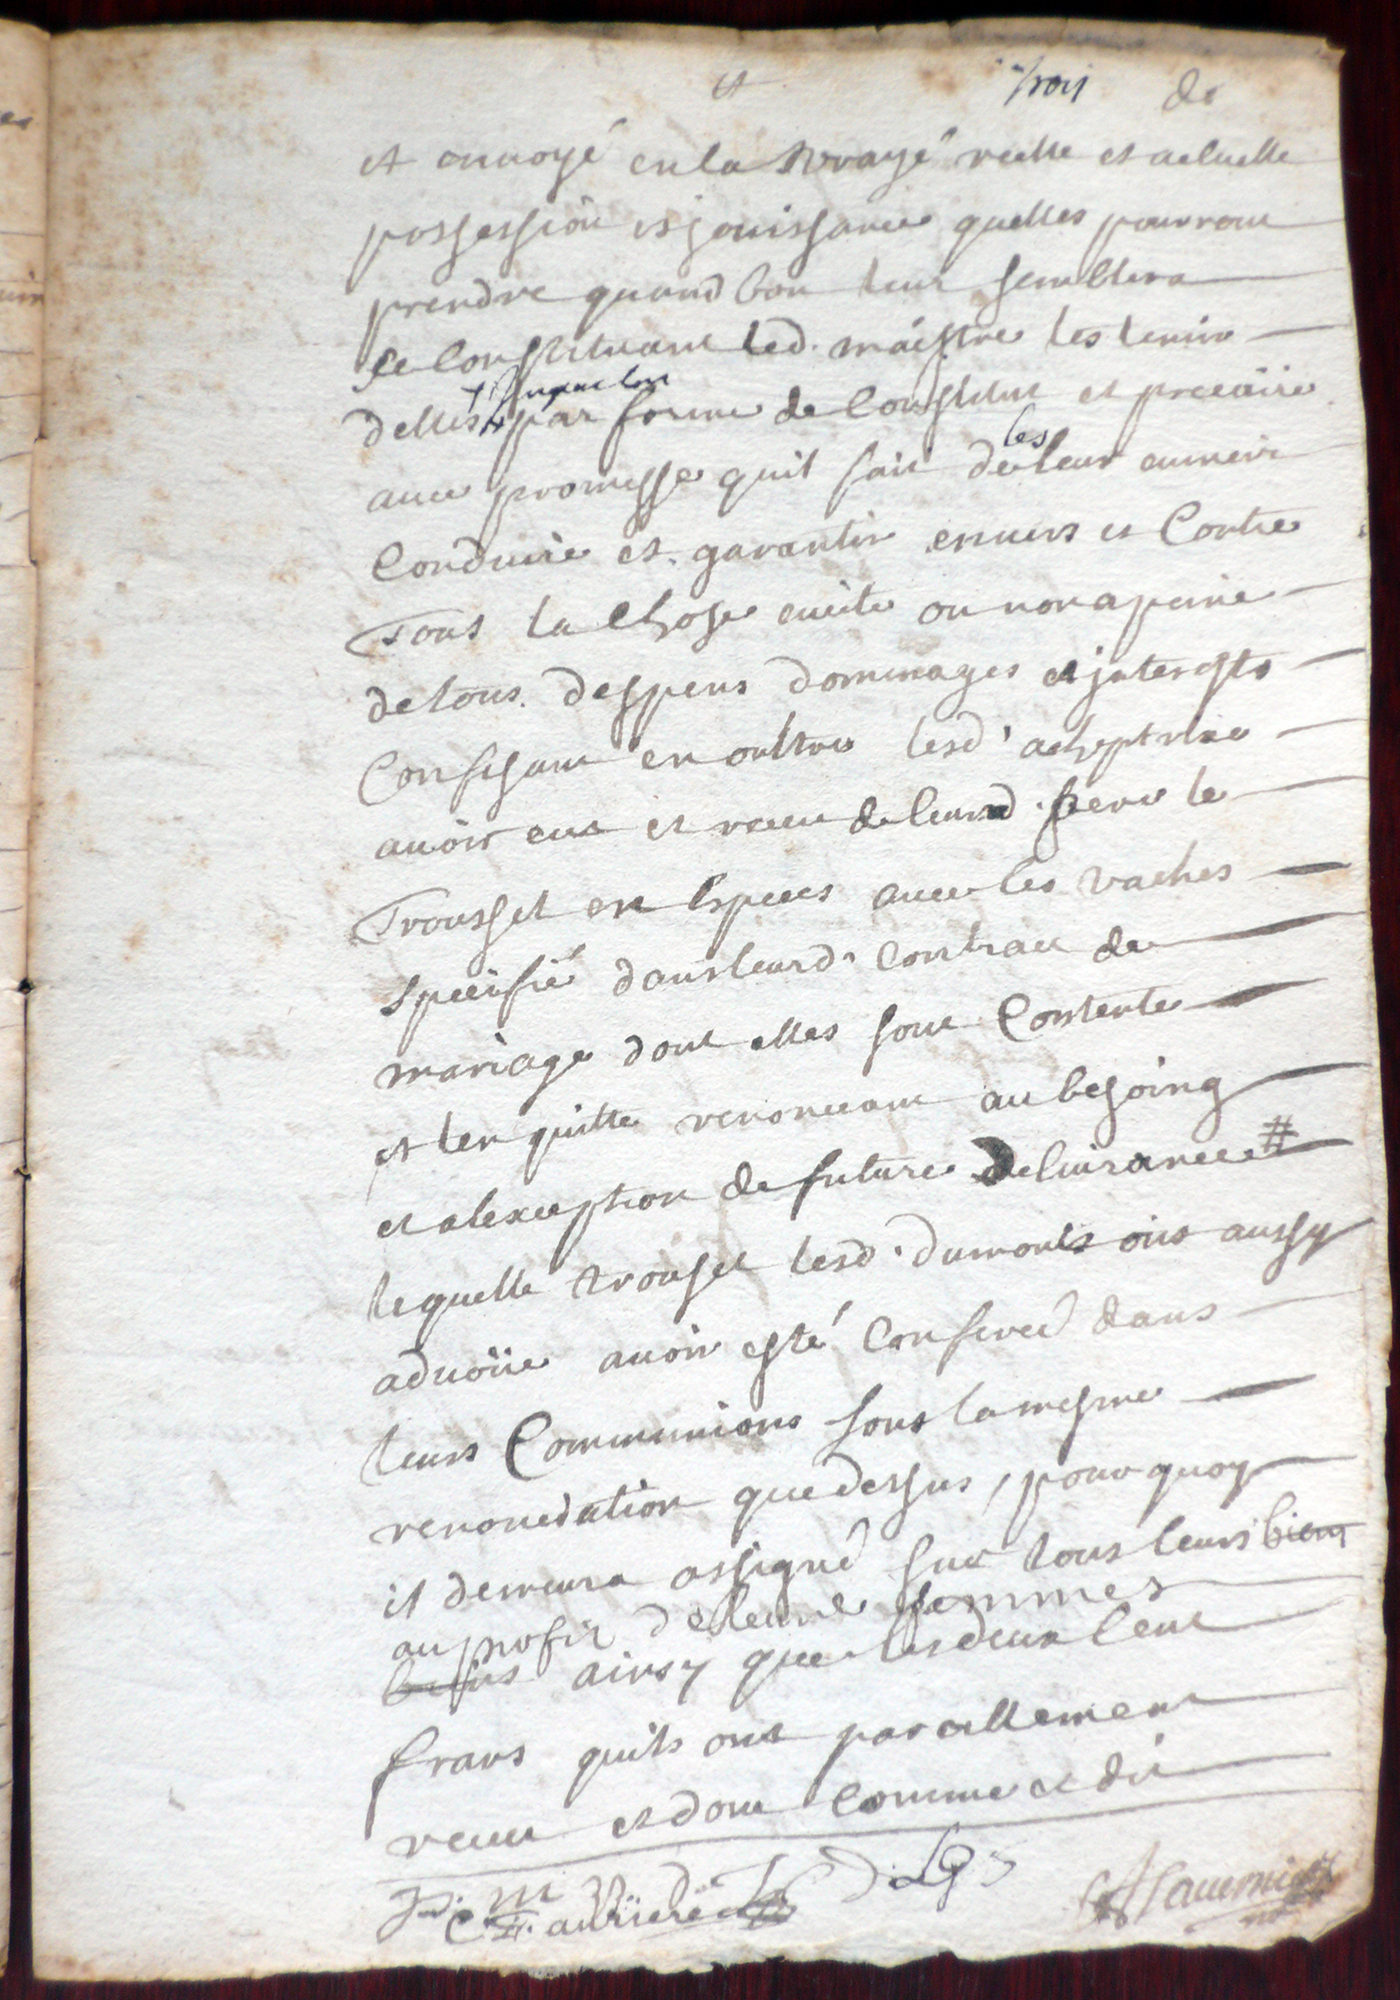 et trois de
et envoyé en la vrayé reelle et actuelle
possession et jouissance quelles pourront
prendre quand bon leur semblera
se Constituant led. maistre les tenir
delles par forme de Constitut et precaire
avec promesse quil fait de les leur
Conduire et garantir envers et Contre
Tous la Chose evicte ou non a peine
de tous despens dommages et jnterests
Confessant en oultre lesd' acheptrice
avoir eue et receu de leurd. frere le
Trousset en Especes avec les vaches
specifié dans leurd. Contract de
mariage dont elles sont Contente
et len quitte renonceant au besoing
et alexception de future delivrance #
lequelle trouset lesd. dumonts ons aussy
advoüe avoir esté Conferéd dans
leurs Communions sous la mesme
renonciation que dessus, pour quoy
il demeura assigné sur tous leurs biens
au profit de leurs femmes
biens ainsy que les deux Cent
frans quils ont pareillement
receu et dont Comme et dit
P. m d d G S